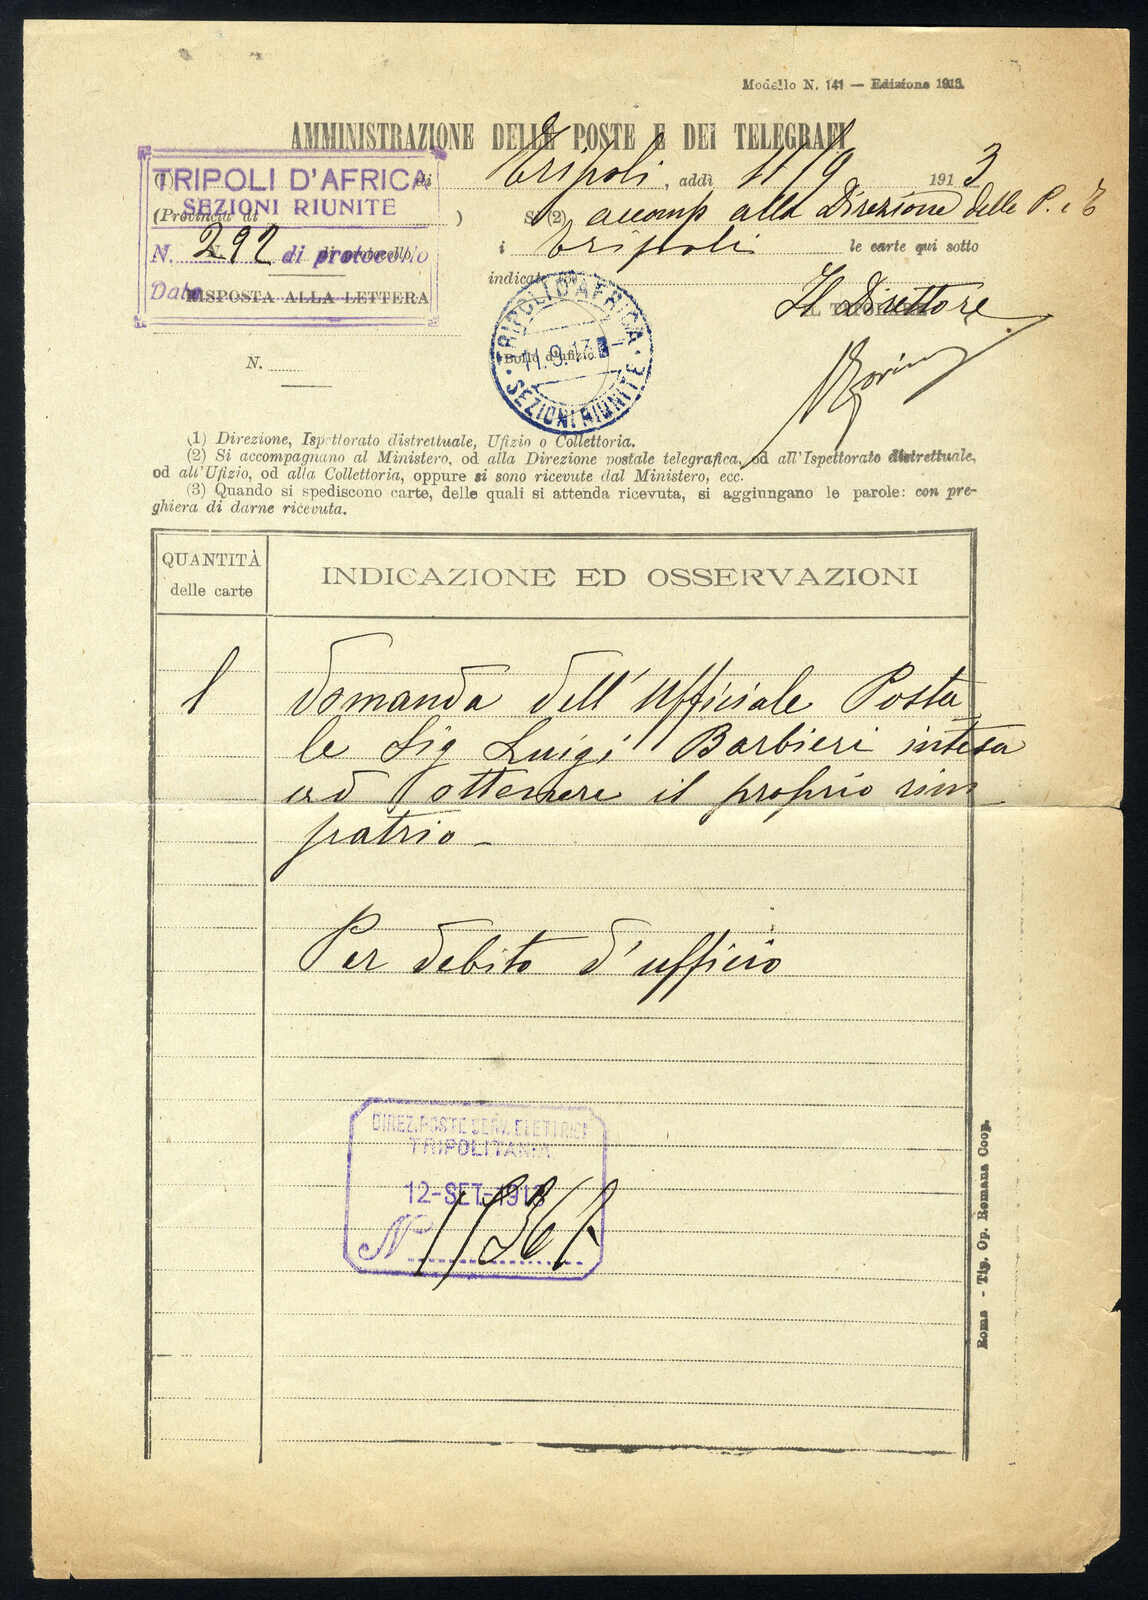 Modello N. 141 — Edizione 1913.
AMMINISTRAZIONE DELLE POSTE E DEI TELEGRAFI
TRIPOLI D'AFRICA
SEZIONI RIUNITE
N. 292 di protocollo
Data
(1) di
(Provincia di )
RISPOSTA ALLA LETTERA
N.
Tripoli, addì 11/9 1913
Si (2) accomp alla Direzione delle P. e T
i Tripoli le carte qui sotto
indicate
Il Direttore
TRIPOLI D'AFRICA
Bollo d'ufizio
11.9.13
SEZIONI RIUNITE
(1) Direzione, Ispettorato distrettuale, Ufizio o Collettoria.
(2) Si accompagnano al Ministero, od alla Direzione postale telegrafica, od all'Ispettorato distrettuale,
od all'Ufizio, od alla Collettoria, oppure si sono ricevute dal Ministero, ecc.
(3) Quando si spediscono carte, delle quali si attenda ricevuta, si aggiungano le parole: con pre-
ghiera di darne ricevuta.
QUANTITÀ
delle carte
INDICAZIONE ED OSSERVAZIONI
1 domanda dell'Ufficiale Posta
le Sig Luigi Barbieri intesa
ad ottenere il proprio rim
patrio -
Per debito d'ufficio
DIREZ. POSTE SERV. ELETTRICI
TRIPOLITANIA
12-SET-1913
N°
Roma - Tip. Op. Romana Coop.